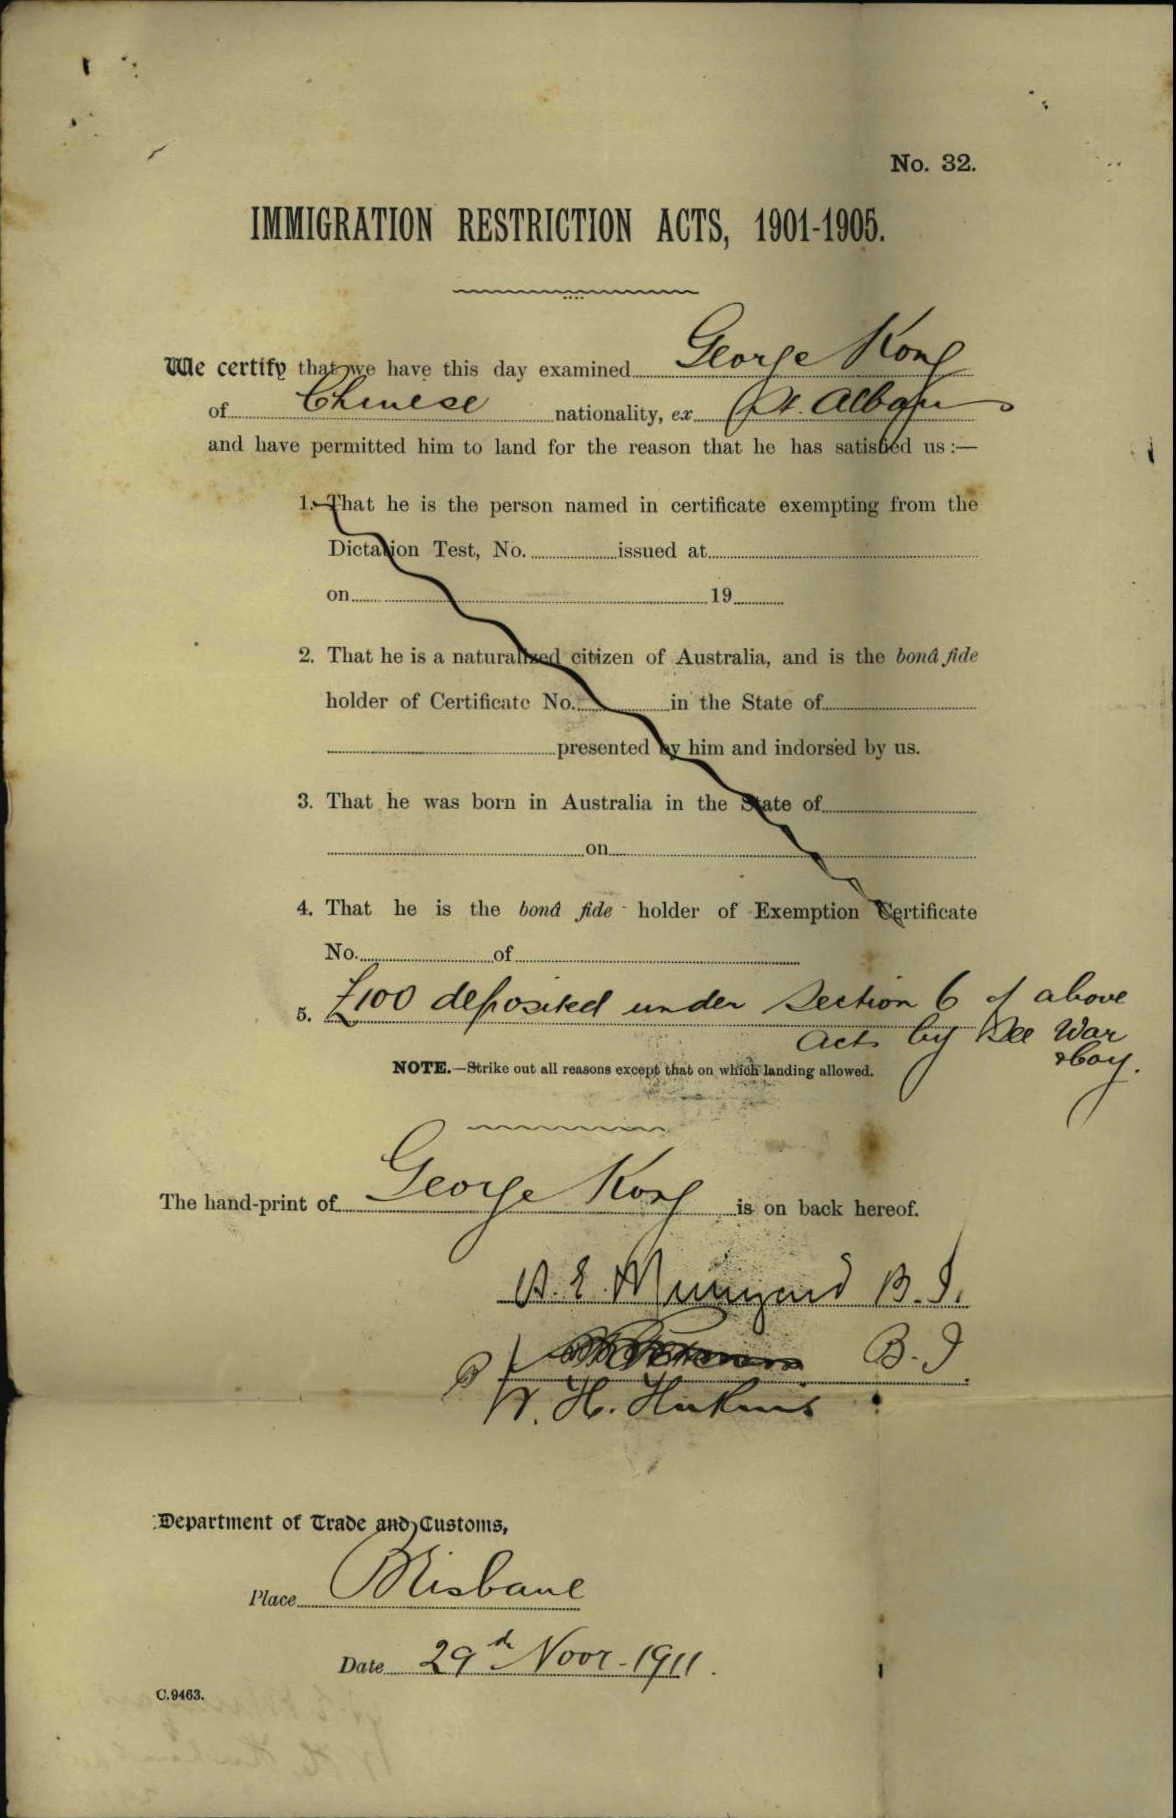 No. 32.
IMMIGRATION RESTRICTION ACTS, 1901-1905.
We certify that we have this day examined George Kong
of Chinese nationality, ex St. Albans
and have permitted him to land for the reason that he has satisfied us :—
1. That he is the person named in certificate exempting from the
Dictation Test, No. issued at
on 19
2. That he is a naturalized citizen of Australia, and is the bonâ fide
holder of Certificate No. in the State of
presented by him and indorsed by us.
3. That he was born in Australia in the State of
on
4. That he is the bonâ fide holder of Exemption Certificate
No. of
5. £100 deposited under Section 6 of above
Acts by See War
& Coy.
NOTE.—Strike out all reasons except that on which landing allowed.
The hand-print of George Kong is on back hereof.
E. B. I.
B. I
W. H.
Department of Trade and Customs,
Place Brisbane
Date 29th Novr. 1911.
C.9463.